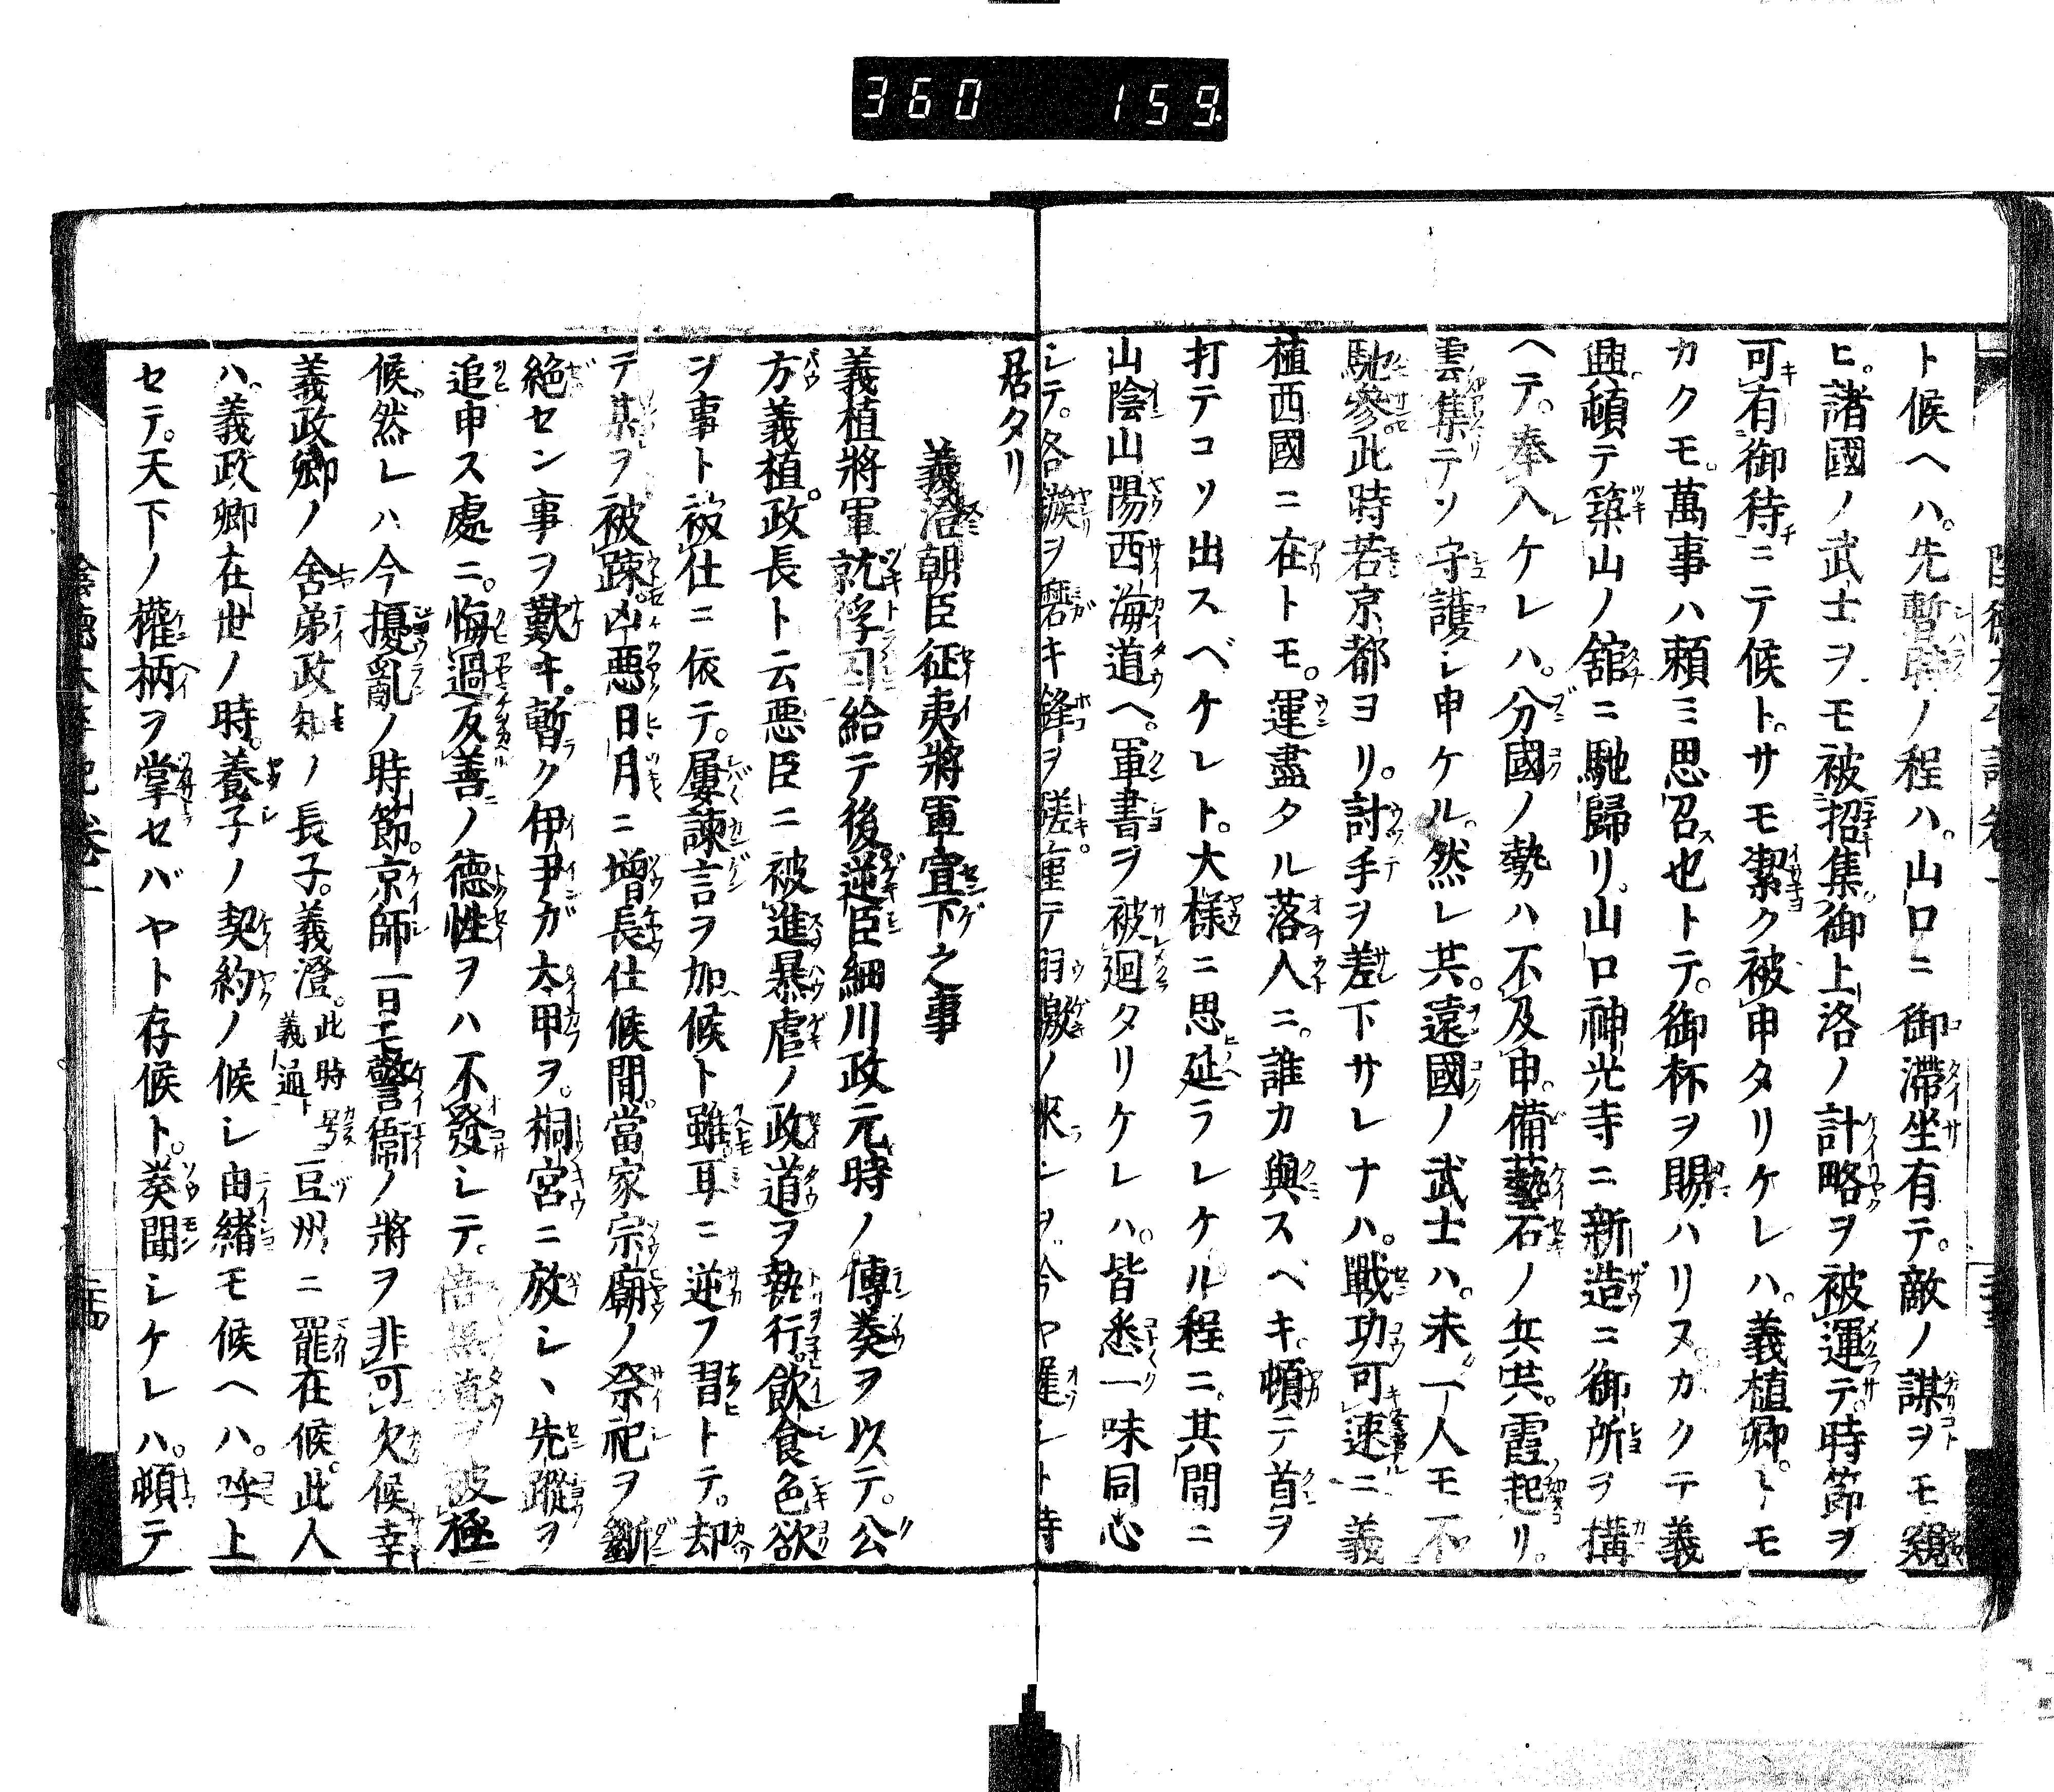 360 159
ト候ヘハ。先暫時ノ程ハ。山口ニ御滯坐有テ。敵ノ謀ヲモ窺
ヒ。諸國ノ武士ヲモ被招集御上洛ノ計略ヲ被運テ。時節ヲ
可有御待ニテ候ト。サモ潔ク被申タリケレハ。義植卿。トモ
カクモ。萬事ハ頼ミ思召也トテ。御杯ヲ賜ハリヌ。カクテ義
興頓テ築山ノ舘ニ馳歸リ。山口神光寺ニ新造ニ御所ヲ構
ヘテ。奉入ケレハ。分國ノ勢ハ不及申。備藝石ノ兵共。霞起リ。
雲集テソ守護シ申ケル。然レ共。遠國ノ武士ハ。未一人モ不
馳參。此時若京都ヨリ。討手ヲ差下サレナハ。戰功可速ニ義
植西國ニ在トモ。運盡タル落人ニ。誰カ與スベキ。頓テ首ヲ
打テコソ出スベケレト。大樣ニ思延ラレケル程ニ。其間ニ
山陰山陽西海道ヘ。軍書ヲ被廻タリケレハ。皆悉一味同心
シテ。各鏃ヲ礪キ鋒ヲ磋車テ羽檄ノ來ラシヲ今ヤ遲シト待
居タリ
義澄朝臣征夷將軍宣下之事
義植將軍就俘囚給テ後。逆臣細川政元時ノ傳奏ヲ以テ。公
方義植。政長ト云惡臣ニ被進暴虐ノ政道ヲ執行。飲食色欲
ヲ事ト被仕ニ依テ。屢諫言ヲ加候ト雖耳ニ逆フ習トテ。却
テ某ヲ被疎。凶惡日月ニ增長仕候間。當家宗廟ノ祭祀ヲ斷
絶セン事ヲ歎キ。暫ク伊尹ガ太甲ヲ。桐宮ニ放シヽ先蹤ヲ
追申ス處ニ。悔過反善ノ德性ヲハ不發シテ。悖無道ヲ被極
候。然レハ今擾亂ノ時節。京師一日モ警衞ノ將ヲ非可欠候幸
義政卿ノ舍弟政知ノ長子。義澄。此時義通ト号豆州ニ罷在候。此人
ハ。義政卿在世ノ時。養子ノ契約ノ候シ由緒モ候ヘハ。呼上
セテ。天下ノ權柄ヲ掌セバヤト存候ト。奏聞シケレハ。頓テ